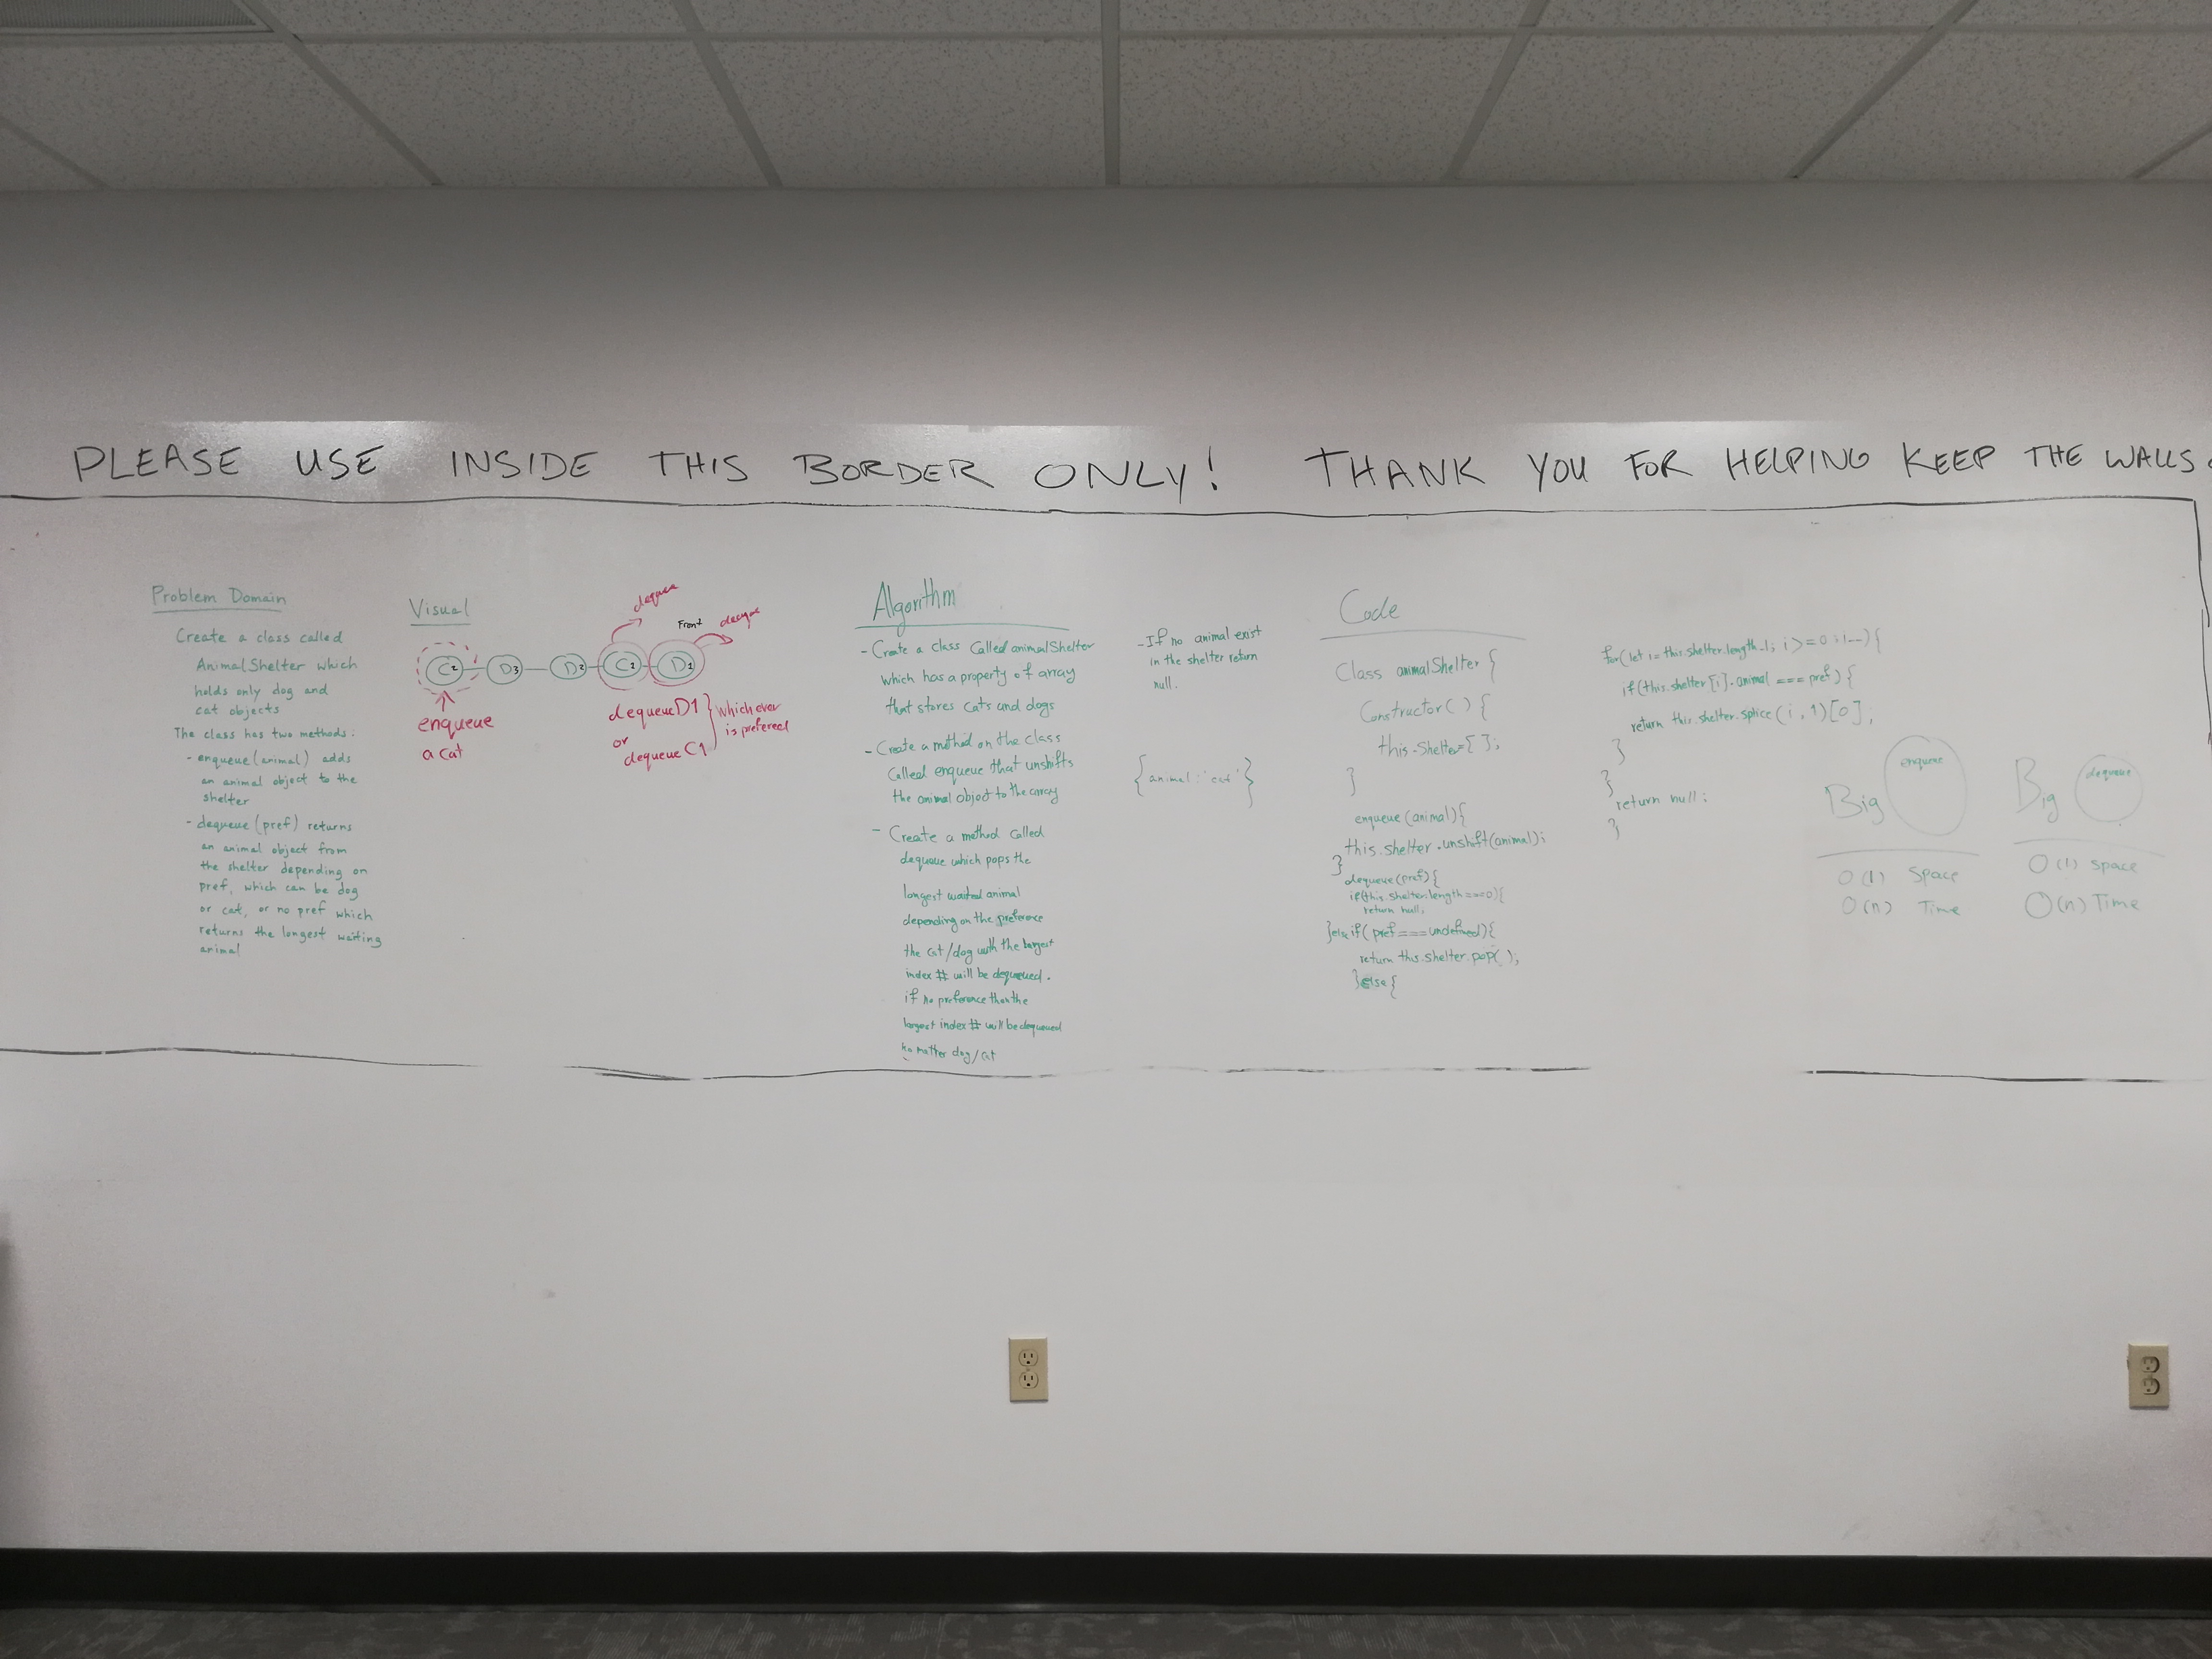 PLEASE USE INSIDE THIS BORDER ONLY! THANK YOU FOR HELPING KEEP THE WALLS
Problem Domain
Create a class called
AnimalShelter which
holds only dog and
cat objects
The class has two methods:
- enqueue(animal) adds
an animal object to the
shelter
- dequeue(pref) returns
an animal object from
the shelter depending on
pref, which can be dog
or cat, or no pref which
returns the longest waiting
animal
Visual
dequeue
Front
C2 D3 D2 C1 D1
enqueue
a cat
dequeue D1
or
dequeue C1
whichever
is prefered
Algorithm
- Create a class Called animalShelter
which has a property of array
that stores cats and dogs
- Create a method on the class
Called enqueue that unshifts
the animal object to the array
- Create a method called
dequeue which pops the
longest waited animal
depending on the preference
the cat/dog with the largest
index # will be dequeued.
if no preference than the
largest index # will be dequeued
no matter dog/cat
- If no animal exist
in the shelter return
null.
{animal: 'cat'}
Code
Class animalShelter {
Constructor() {
this.Shelter=[];
}
enqueue(animal){
this.shelter.unshift(animal);
}
dequeue(pref){
if(this.shelter.length===0){
return null;
}else if(pref===undefined){
return this.shelter.pop();
}else{
for(let i=this.shelter.length-1; i>=0; i--){
if(this.shelter[i].animal === pref){
return this.shelter.splice(i,1)[0];
}
}
return null;
}
Big
enqueue
O(1) Space
O(n) Time
Big
dequeue
O(1) Space
O(n) Time